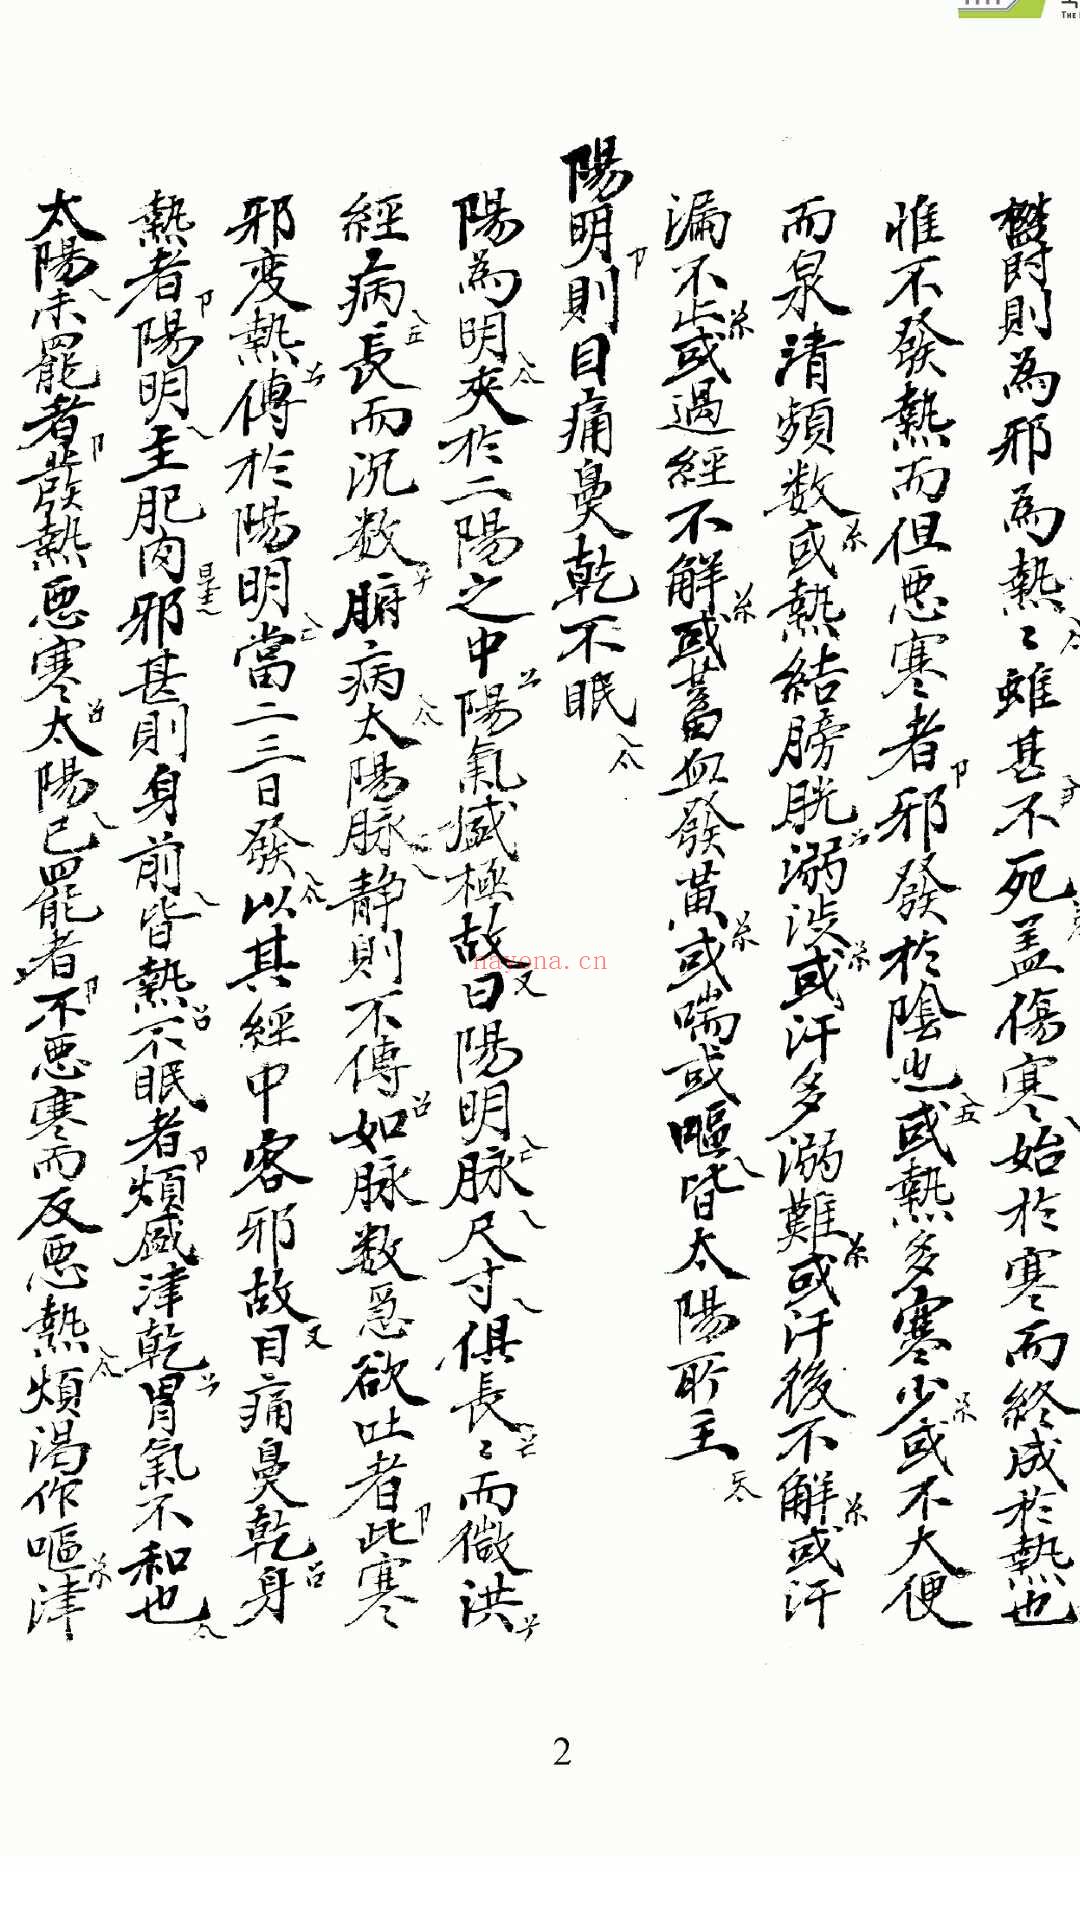 欝則為邪為熱〻雖甚不死盖傷寒始於寒而終成於熱也
惟不發熱而但悪寒者邪發於陰也或熱多寒少或不大便
而泉清頻数或熱結膀胱溺澁或汗多溺難或汗後不解或汗
漏不止或過經不解或蓄血發黃或喘或嘔皆太陽所主
陽明則目痛鼻乾不眠
陽為明夾於二陽之中陽氣盛極故曰陽明脉尺寸俱長〻而微洪
經病長而沉数腑病太陽脉静則不傳如脉数急欲吐者此寒
邪变熱傳於陽明當二三日發以其經中客邪故目痛鼻乾身
熱者陽明主肥肉邪甚則身前皆熱不眠者煩盛津乾胃氣不和也
太陽未罷者發熱悪寒太陽已罷者不悪寒而反悪熱煩渴作嘔津
nayona.cn
THE
2